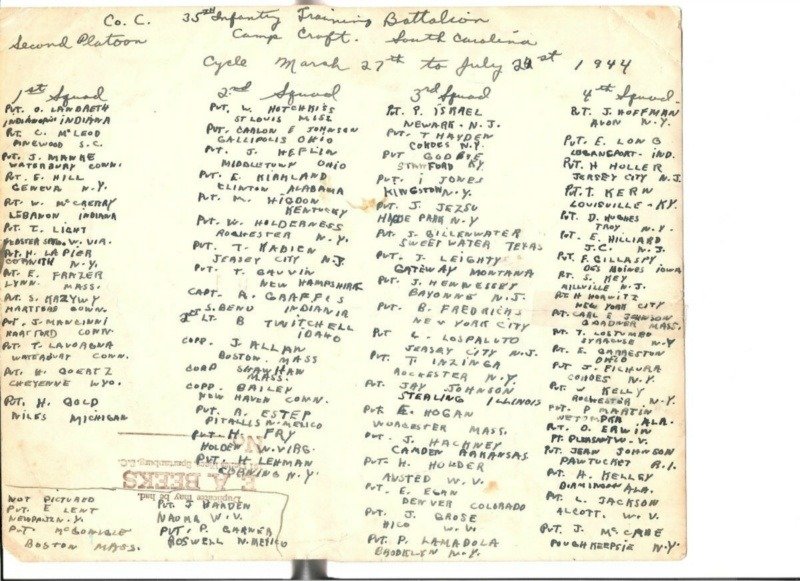 Co. C. 35TH Infantry Training Battalion
Second Platoon Camp Croft. South Carolina
Cycle March 27th to July 21st 1944
1st Squad
PVT. O. LANDRETH
INDIANAPOLIS INDIANA
PVT. C. McLEOD
PINEWOOD S.C.
PVT. J. MANKE
WATERBURY CONN.
PVT. E. HILL
GENEVA N.Y.
PVT. W. McCRERRY
LEBANON INDIANA
PVT. T. LIGHT
WEBSTER SPRG. W. VIR.
PVT. H. LAPIER
CORINTH N.Y.
PVT. E. FRAZER
LYNN. MASS.
PVT. S. KAZYWY
HARTFORD CONN.
PVT. J. MANCINNI
HARTFORD CONN.
PVT. T. LAVORGNA
WATERBURY CONN.
PVT. H. GOERTZ
CHEYENNE WYO.
PVT. H. GOLD
NILES MICHIGAN
2nd Squad
PVT. W. HOTCHKISS
ST LOUIS MISS.
PVT. CARLON E JOHNSON
GALLIPOLIS OHIO
PVT. J. HEFLIN
MIDDLETOWN OHIO
PVT. E. KIRKLAND
CLINTON ALABAMA
PVT. M. HIGDON
KENTUCKY
PVT. W. HOLDERNESS
ROCHESTER N.Y.
PVT. T. KADIEN
JERSEY CITY N.J.
PVT. T. GAUVIN
NEW HAMPSHIRE
CAPT. R. GRAFFIS
S. BEND INDIANIA
2nd LT. B TWITCHELL
IDAHO
CORP. J. ALLAN
BOSTON. MASS
CORP SHAWHAN
MASS.
CORP. BAILEY
NEW HAVEN CONN.
PVT. A. ESTEP
PITALLIS N. MEXICO
PVT. H. FRY
HOLDEN W. VIRG.
PVT. H. LEHMAN
CORNING N.Y.
3rd Squad
PVT. P. ISRAEL
NEWARK. N.J.
PVT. T HAYDEN
COHOES N.Y.
PVT GODBYE
STANFORD KY.
PVT. I JONES
KINGSTON N.Y.
PVT. J. JEZSU
HYDE PARK N.Y
PVT. J. GILLENWATER
SWEET WATER TEXAS
PVT. J LEIGHTY
GATEWAY MONTANA
PVT. J. HENNESSEY
BAYONNE N.J.
PVT. B. FREDRICKS
NEW YORK CITY
PVT L. LOSPALUTO
JERSEY CITY N.J.
PVT. T INZINGA
ROCHESTER N.Y.
PVT. JAY JOHNSON
STERLING ILLINOIS
PVT. E. HOGAN
WORCESTER MASS.
PVT. J. HACKNEY
CAMDEN ARKANSAS
PVT. H. HOLDER
AUSTED W.V.
PVT. E. EGAN
DENVER COLORADO
PVT. J. GROSE
HICO W.V.
PVT. P. LAMADOLA
BROOKLYN N.Y.
4th Squad.
PVT. J. HOFFMAN
AVON N.Y.
PVT. E. LONG
LOGANSPORT. IND.
PVT. H HOLLER
JERSEY CITY N.J.
PVT. T. KERN
LOUISVILLE - KY.
PVT. D. HUGHES
TROY N.Y.
PVT. E. HILLIARD
J.C. N.J.
PVT. F. GILLASPY
DES MOINES IOWA
PVT. S. KEY
MILLVILLE N.J.
PVT. H HORWITZ
NEW YORK CITY
PVT. CARL E JOHNSON
GARDNER MASS.
PVT. T. LOSTUMBO
SYRACUSE N.Y
PVT. E. GARRESTON
OHIO
PVT J. PICHURA
COHOES N.Y.
PVT. W KELLY
ROCHESTER N.Y.
PVT. P MARTIN
ALA.
PVT. O. ERWIN
PT. PLEASANT W.V.
PVT. JEAN JOHNSON
PAWTUCKET R.I.
PVT. A. KELLEY
ALA.
PVT. L. JACKSON
ALCOTT. W.V.
PVT. J. McCABE
POUGHKEEPSIE N.Y.
NOT PICTURED
PVT. E LENT
N.Y.
PVT.
BOSTON MASS.
PVT. J HARDEN
NAOMA W.V.
PVT. P. GARNER
ROSWELL N. MEXICO
Duplicates may be had.
E. A. BEEKS
Spartanburg, S.C.